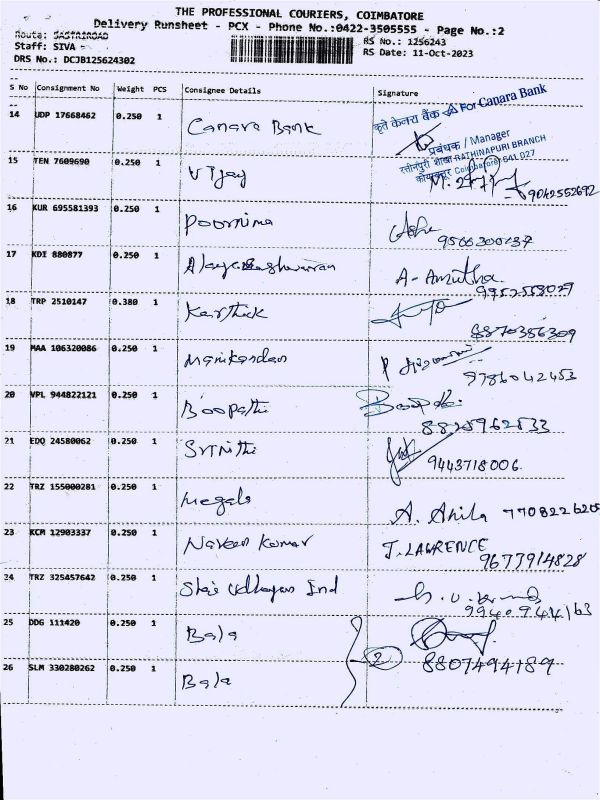 THE PROFESSIONAL COURIERS, COIMBATORE
Delivery Runsheet - PCX - Phone No.:0422-3505555 - Page No.:2
Route: SASTRIROAD
Staff: SIVA -
DRS No.: DCJB125624302
RS No.: 1256243
RS Date: 11-Oct-2023
S No Consignment No Weight PCS Consignee Details Signature
14 UDP 17668462 0.250 1 Canara Bank
कृते केनरा बैंक For Canara Bank
प्रबंधक / Manager
रत्तीनपुरी शाखा RATHINAPURI BRANCH
कोयम्बत्तूर Coimbatore 641 027
15 TEN 7609690 0.250 1 Vijay 9042552692
16 KUR 695581393 0.250 1 Poornima
17 KDI 880877 0.250 1 A-Amutha
18 TRP 2510147 0.380 1 Karthick 8870356309
19 MAA 106320086 0.250 1 Manikandan 9786042453
20 VPL 944822121 0.250 1 Boopathi 8825962533
21 EDQ 24580062 0.250 1 Srinithi 9443718006
22 TRZ 155000281 0.250 1 Megala A. Anila
23 KCM 12903337 0.250 1 Naveen Kumar J. LAWRENCE 9677914828
24 TRZ 325457642 0.250 1 Ind 9940944163
25 DDG 111420 0.250 1 Bala
2 8807494189
26 SLM 330280262 0.250 1 Bala